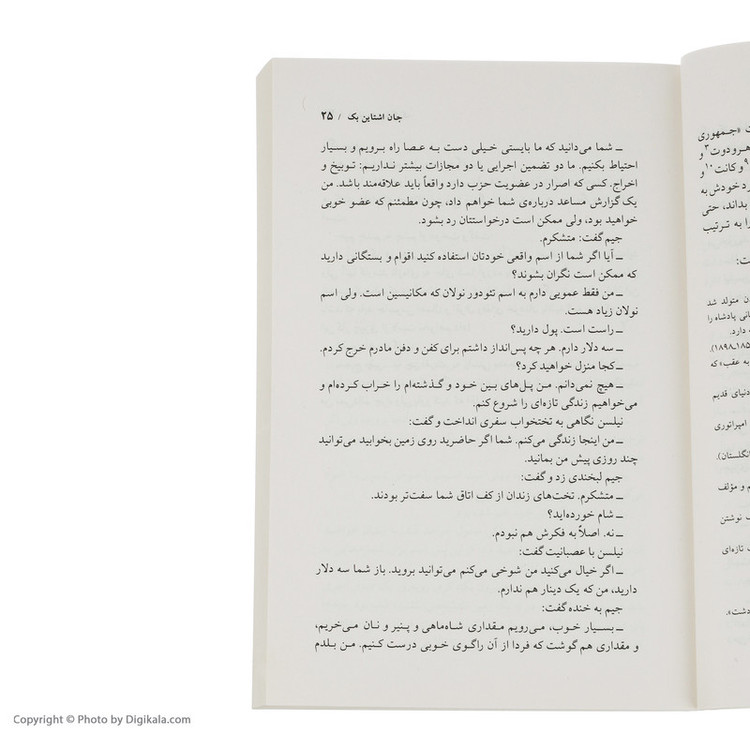 جان اشتاین بک / ۲۵
ــ شما می‌دانید که ما بایستی خیلی دست به عصا راه برویم و بسیار
احتیاط بکنیم. ما دو تضمین اجرایی یا دو مجازات بیشتر نداریم: توبیخ و
اخراج. کسی که اصرار در عضویت حزب دارد واقعاً باید علاقه‌مند باشد. من
یک گزارش مساعد درباره‌ی شما خواهم داد، چون مطمئنم که عضو خوبی
خواهید بود، ولی ممکن است درخواستتان رد بشود.
جیم گفت: متشکرم.
ــ آیا اگر شما از اسم واقعی خودتان استفاده کنید اقوام و بستگانی دارید
که ممکن است نگران بشوند؟
ــ من فقط عمویی دارم به اسم تئودور نولان که مکانیسین است. ولی اسم
نولان زیاد هست.
ــ راست است. پول دارید؟
ــ سه دلار دارم. هر چه پس‌انداز داشتم برای کفن و دفن مادرم خرج کردم.
ــ کجا منزل خواهید کرد؟
ــ هیچ نمی‌دانم. من پل‌های بین خود و گذشته‌ام را خراب کرده‌ام و
می‌خواهیم زندگی تازه‌ای را شروع کنم.
نیلسن نگاهی به تختخواب سفری انداخت و گفت:
ــ من اینجا زندگی می‌کنم. شما اگر حاضرید روی زمین بخوابید می‌توانید
چند روزی پیش من بمانید.
جیم لبخندی زد و گفت:
ــ متشکرم. تخت‌های زندان از کف اتاق شما سفت‌تر بودند.
ــ شام خورده‌اید؟
ــ نه. اصلاً به فکرش هم نبودم.
نیلسن با عصبانیت گفت:
ــ اگر خیال می‌کنید من شوخی می‌کنم می‌توانید بروید. باز شما سه دلار
دارید، من که یک دینار هم ندارم.
جیم به خنده گفت:
ــ بسیار خوب، می‌رویم مقداری شاه‌ماهی و پنیر و نان می‌خریم،
و مقداری هم گوشت که فردا از آن راگوی خوبی درست کنیم. من بلدم
ت «جمهوری
هرودوت۳ و
۹ و کانت۱۰ و
رد خودش به
بداند، حتی
را به ترتیب
ت:
دن متولد شد
انی پادشاه را
دارد.
۱۸۹۸ـ۱۸۵
به عقب» که
دنیای قدیم
امپراتوری
نگلستان).
م و مؤلف
نوشتن
تازه‌ای
دشت».
Copyright © Photo by Digikala.com